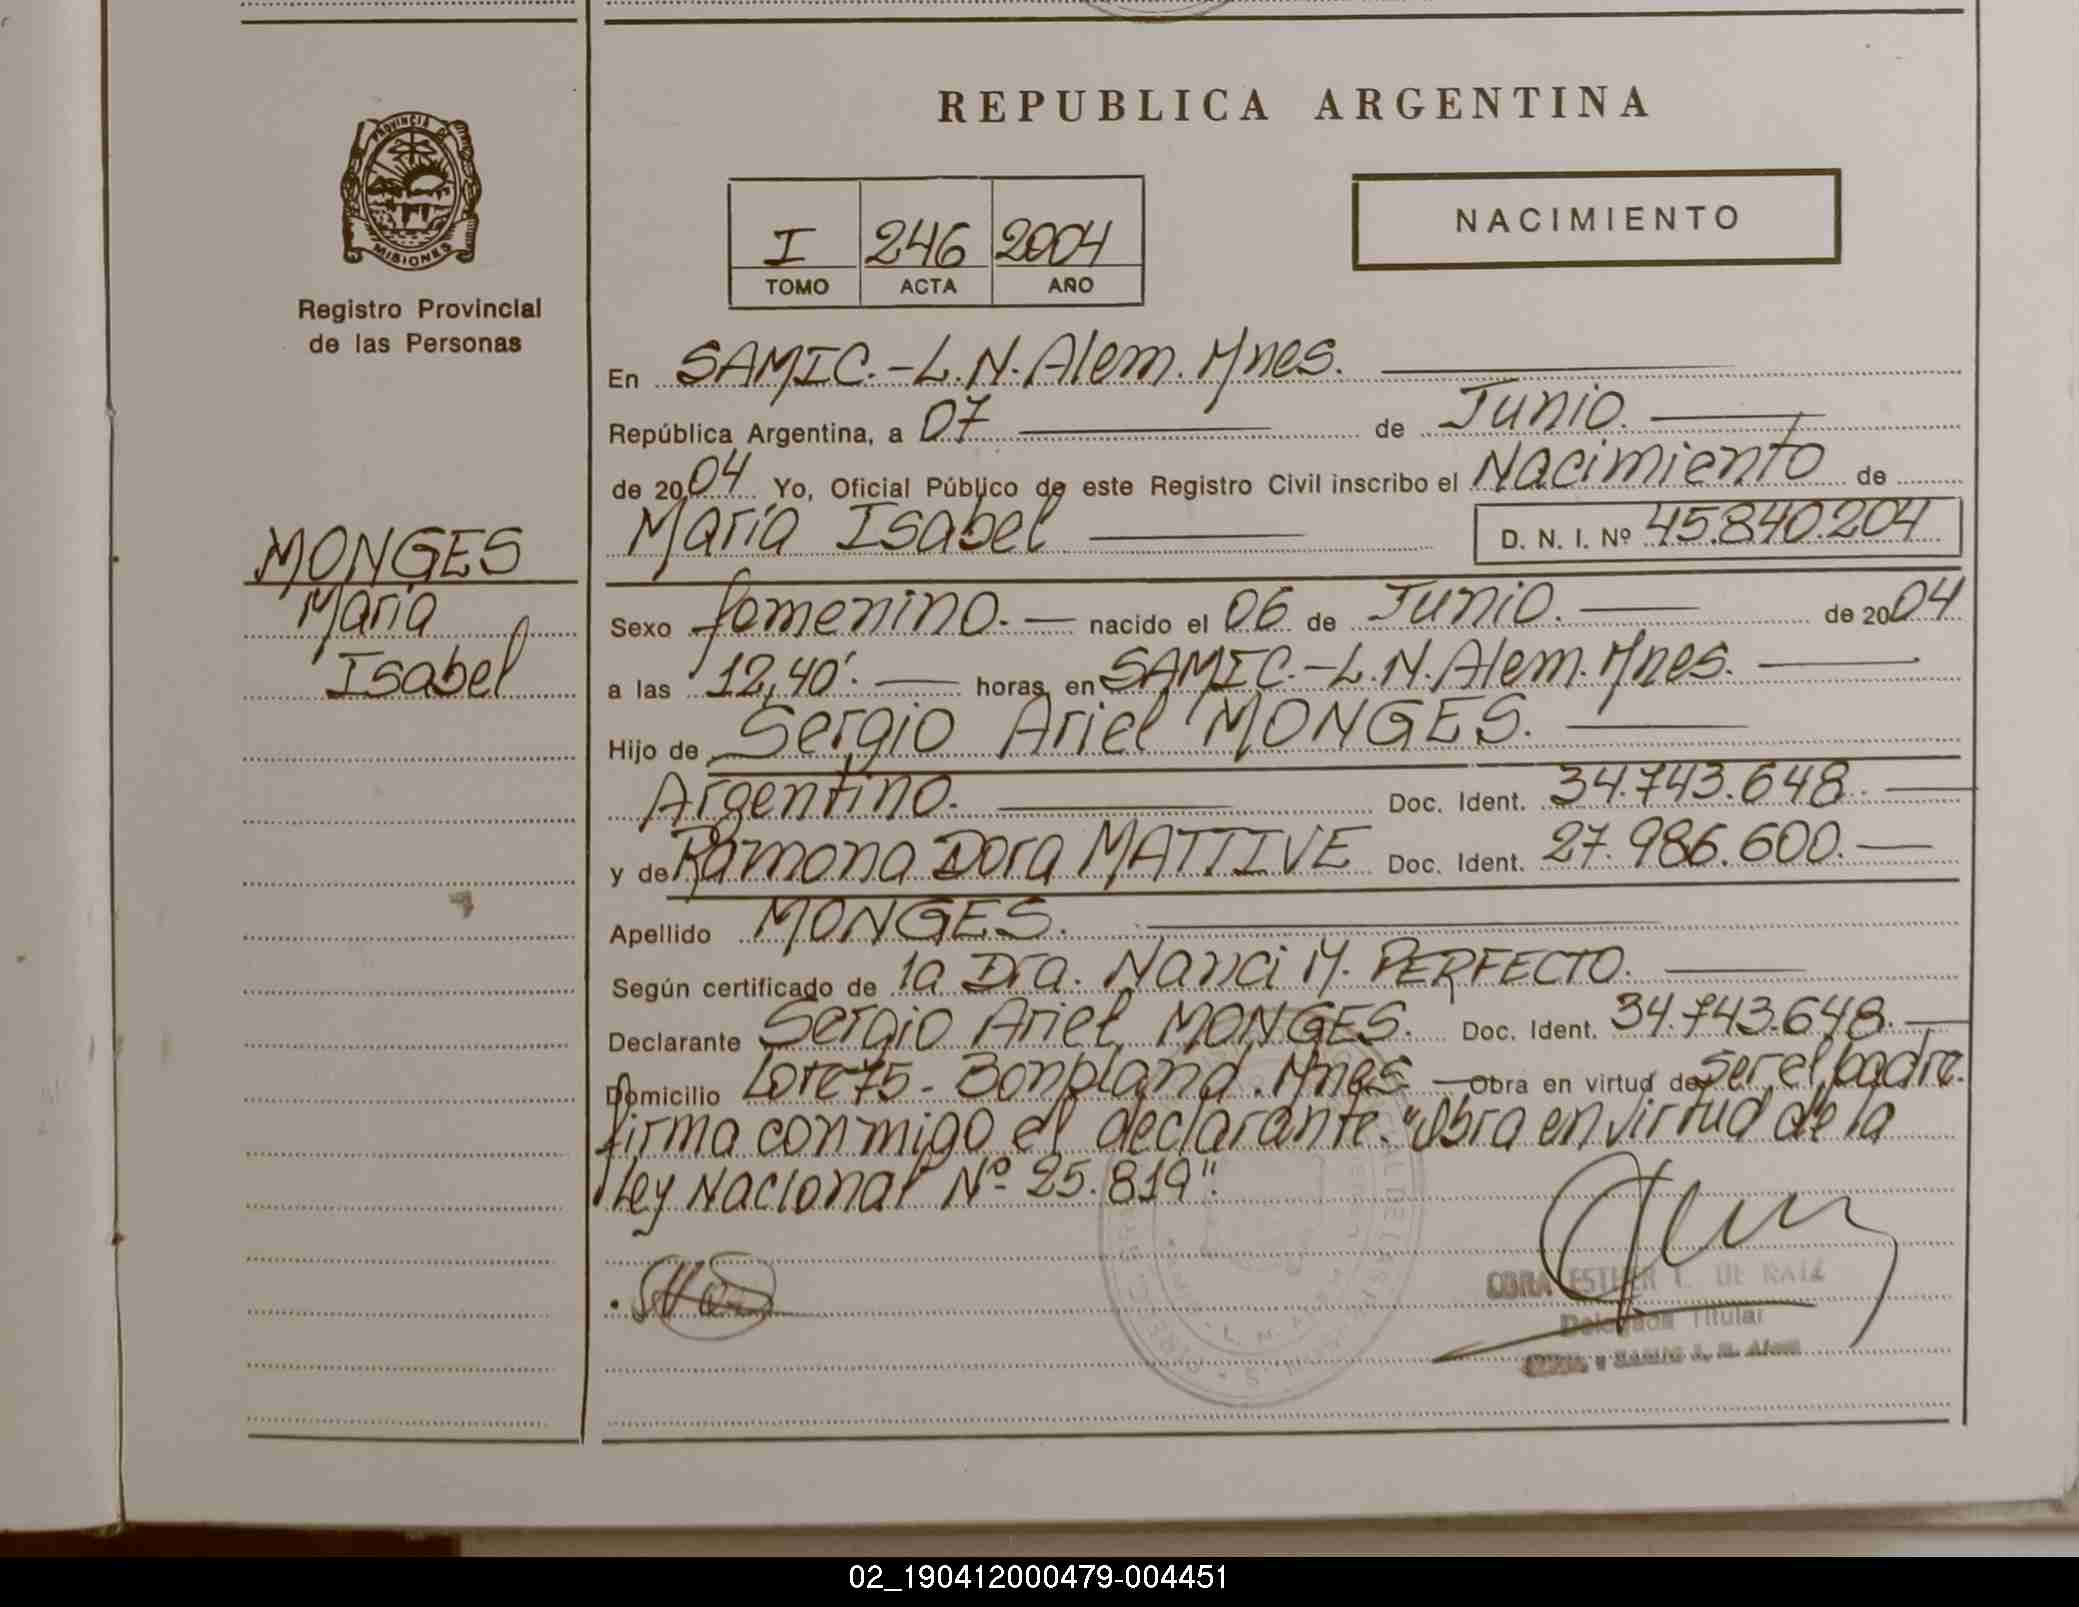 REPUBLICA ARGENTINA
PROVINCIA DE
MISIONES
Registro Provincial
de las Personas
I 246 2004
TOMO ACTA AÑO
NACIMIENTO
En SAMIC.-L.N.Alem.Mnes.
República Argentina, a 07 de Junio.
de 2004 Yo, Oficial Público de este Registro Civil inscribo el Nacimiento de
María Isabel D. N. I. Nº 45.840.204
MONGES
María
Isabel
Sexo femenino.- nacido el 06 de Junio. de 2004
a las 12,40'. horas, en SAMIC.-L.N.Alem.Mnes.
Hijo de Sergio Ariel MONGES.
Argentino. Doc. Ident. 34.743.648.
y de Ramona Dora MATTIVE Doc. Ident. 27.986.600.
Apellido MONGES.
Según certificado de la Dra. Nanci M. PERFECTO.
Declarante Sergio Ariel MONGES. Doc. Ident. 34.743.648.
Domicilio Lote 75- Bonpland. Mnes Obra en virtud de ser el padre.
firma conmigo el declarante. "Obra en virtud de la
Ley Nacional Nº 25.819".
ESTHER
Titular
02_190412000479-004451